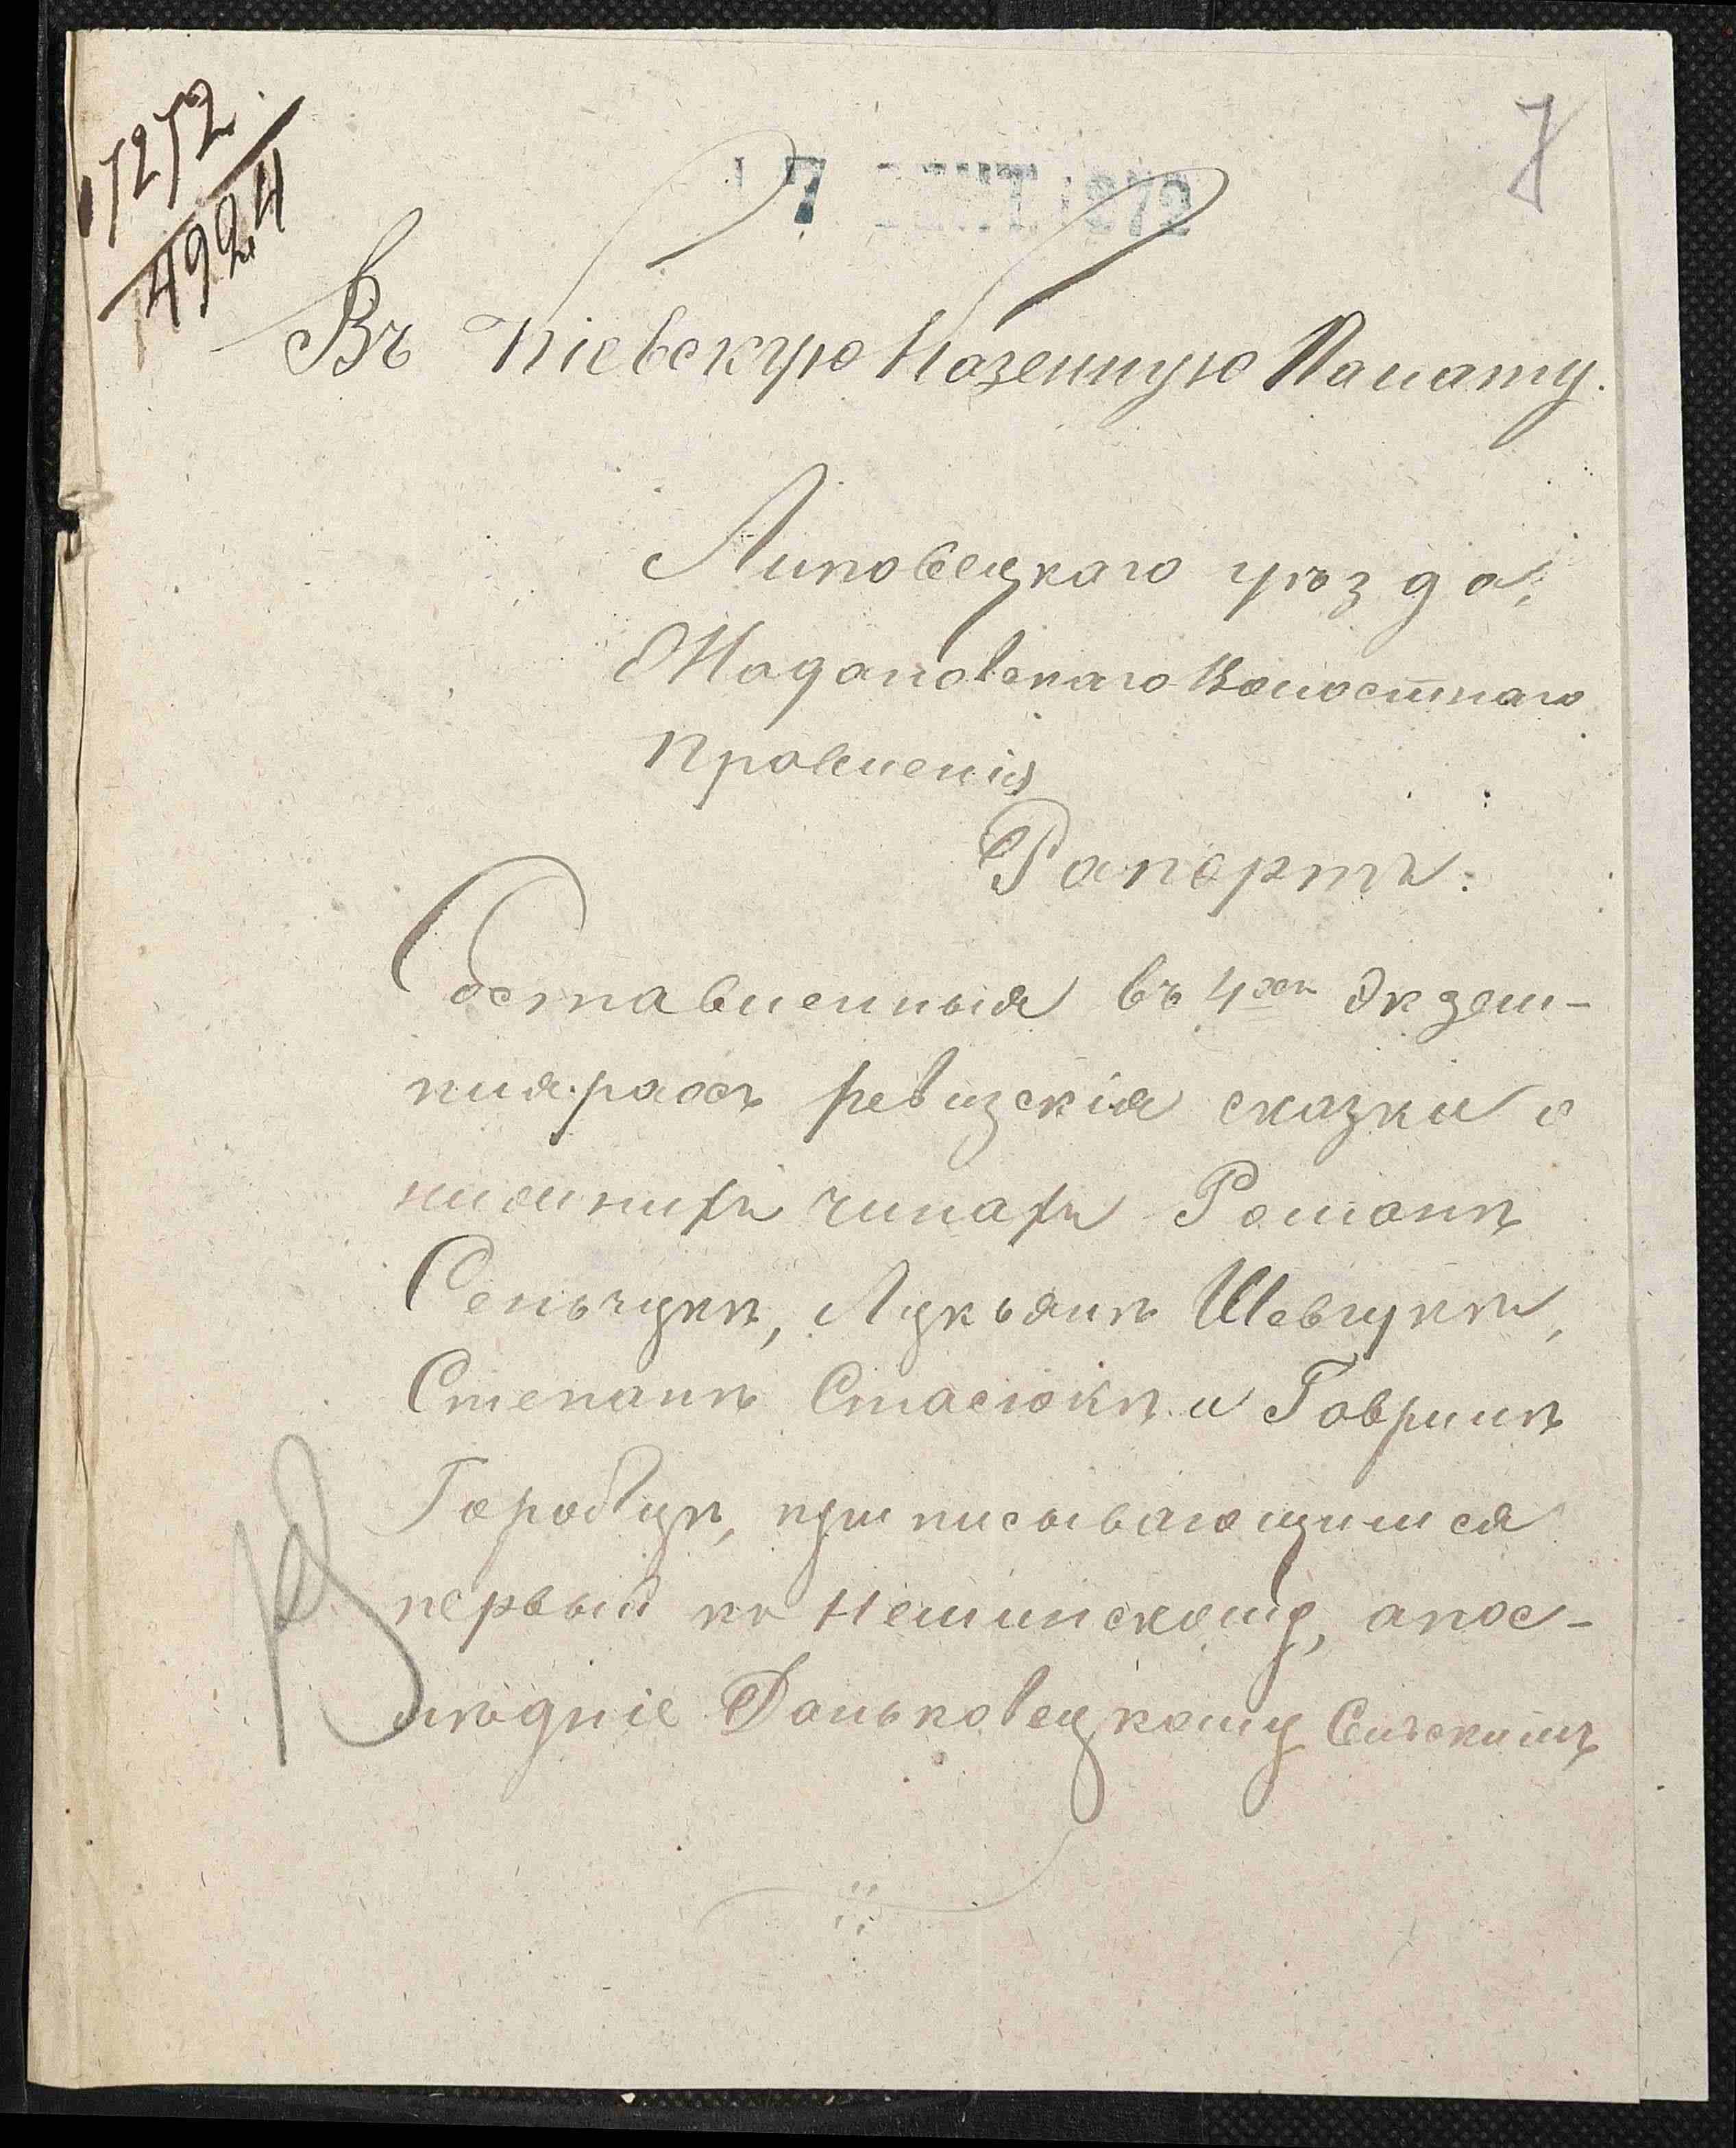 17252
4924
7
7 СЕНТ 1872
Въ Кіевскую Казенную Палату.
Липовецкаго уѣзда,
Жадановскаго Волостнаго
Правленія
Рапортъ.
Составленныя въ 4хъ экзем-
плярахъ ревизскія сказки о
нижнихъ чинахъ Романѣ
Сеньчукѣ, Лукьянѣ Шевчукѣ,
Степанѣ Стасюкѣ и Гаврилѣ
Горобцѣ, приписывающимся
первый къ, а пос-
лѣдніе Даньковецкому Сельскимъ